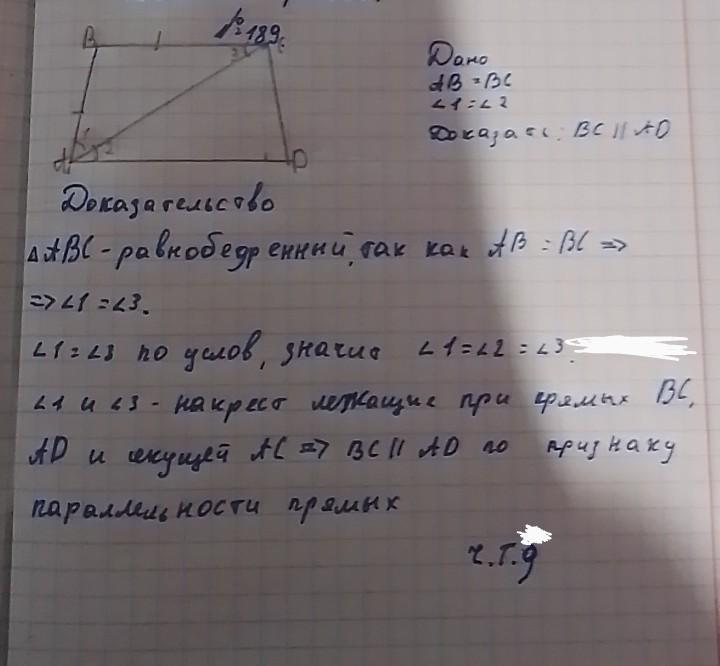 №189.
B C
3
1 2
A D
Дано
AB = BC
∠1 = ∠2
Доказать: BC || AD
Доказательство
△ABC - равнобедренный, так как AB = BC =>
=> ∠1 = ∠3.
∠1 = ∠3 по услов, значит ∠1 = ∠2 = ∠3.
∠1 и ∠3 - накрест лежащие при прямых BC,
AD и секущей AC => BC || AD по признаку
параллельности прямых
ч.т.д